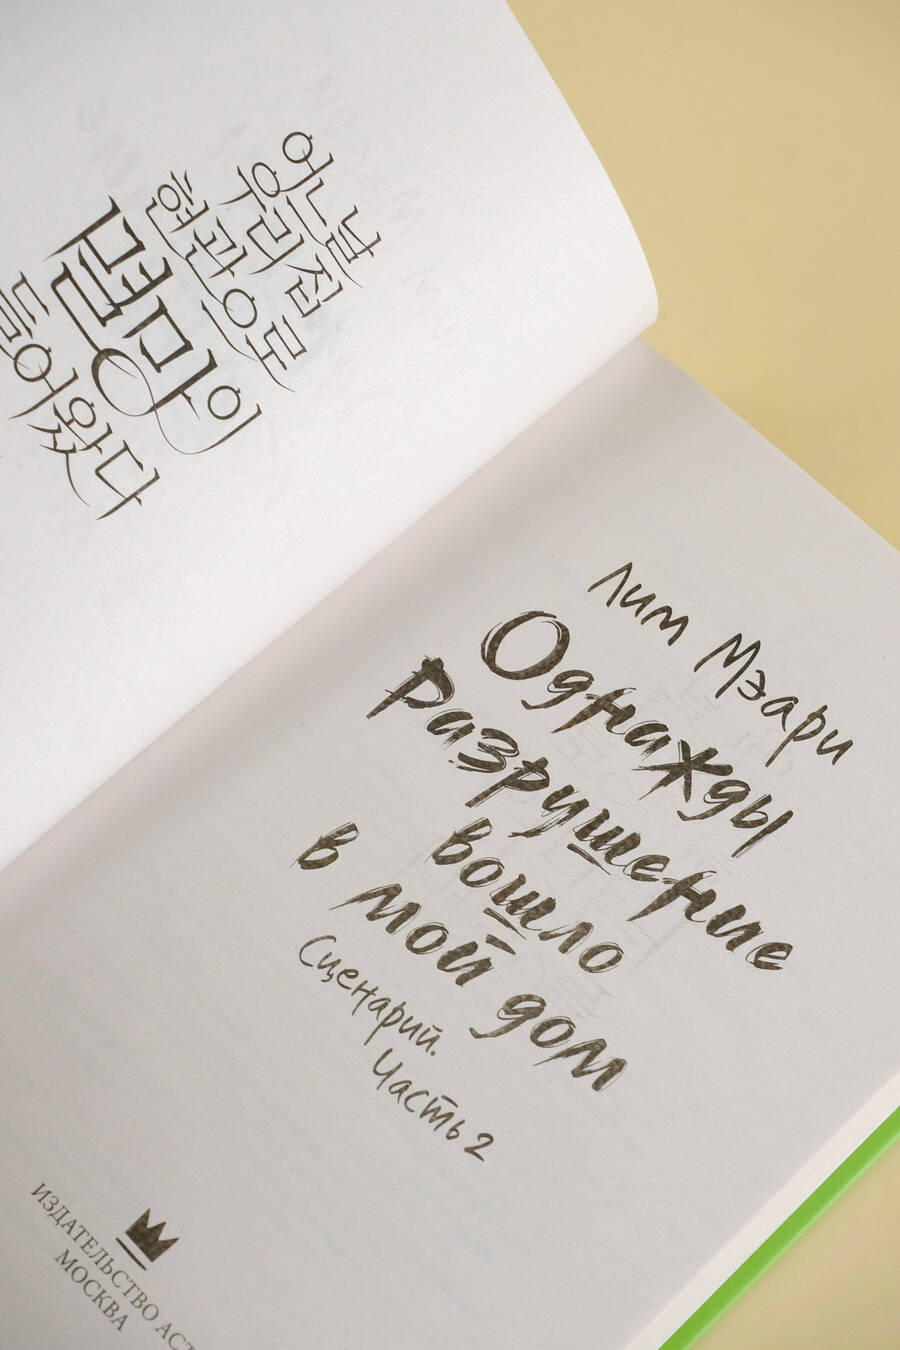 어느날
우리집
현관으로
멸망이
들어왔다
Лим Мэари
Однажды
Разрушение
вошло
в мой дом
Сценарий.
Часть 2
ИЗДАТЕЛЬСТВО АСТ
МОСКВА